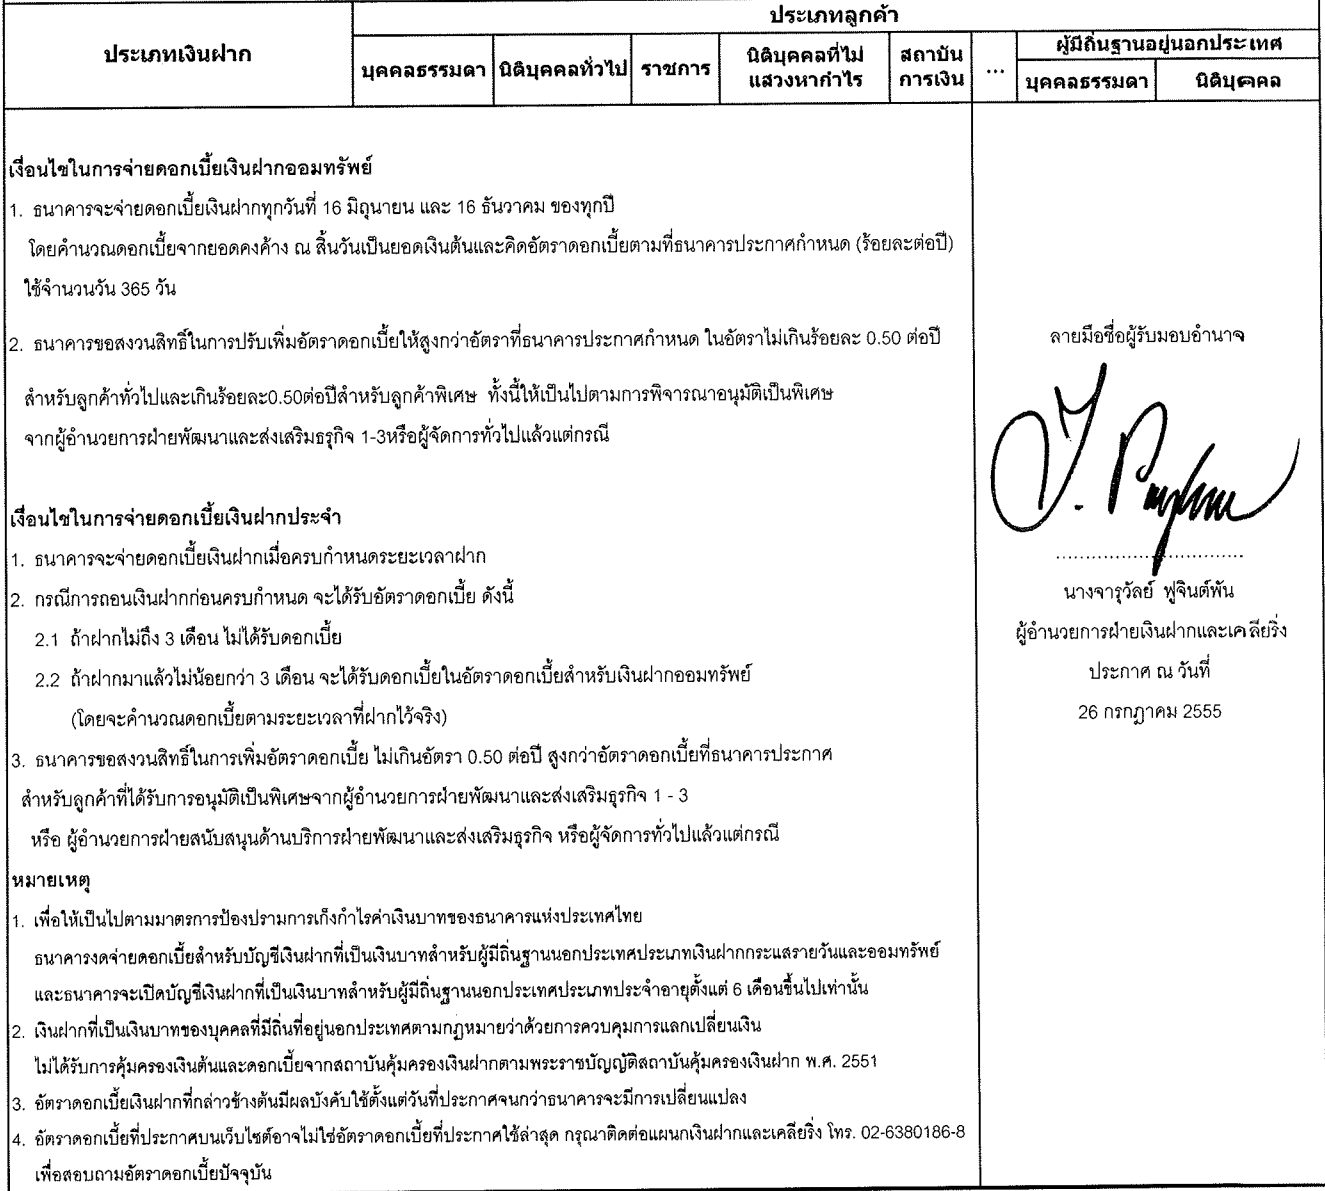 ประเภทเงินฝาก
ประเภทลูกค้า
บุคคลธรรมดา
นิติบุคคลทั่วไป
ราชการ
นิติบุคคลที่ไม่
แสวงหากำไร
สถาบัน
การเงิน
...
ผู้มีถิ่นฐานอยู่นอกประเทศ
บุคคลธรรมดา
นิติบุคคล
เงื่อนไขในการจ่ายดอกเบี้ยเงินฝากออมทรัพย์
1. ธนาคารจะจ่ายดอกเบี้ยเงินฝากทุกวันที่ 16 มิถุนายน และ 16 ธันวาคม ของทุกปี
โดยคำนวณดอกเบี้ยจากยอดคงค้าง ณ สิ้นวันเป็นยอดเงินต้นและคิดอัตราดอกเบี้ยตามที่ธนาคารประกาศกำหนด (ร้อยละต่อปี)
ใช้จำนวนวัน 365 วัน
2. ธนาคารขอสงวนสิทธิ์ในการปรับเพิ่มอัตราดอกเบี้ยให้สูงกว่าอัตราที่ธนาคารประกาศกำหนด ในอัตราไม่เกินร้อยละ 0.50 ต่อปี
สำหรับลูกค้าทั่วไปและเกินร้อยละ0.50ต่อปีสำหรับลูกค้าพิเศษ ทั้งนี้ให้เป็นไปตามการพิจารณาอนุมัติเป็นพิเศษ
จากผู้อำนวยการฝ่ายพัฒนาและส่งเสริมธรุกิจ 1-3หรือผู้จัดการทั่วไปแล้วแต่กรณี
เงื่อนไขในการจ่ายดอกเบี้ยเงินฝากประจำ
1. ธนาคารจะจ่ายดอกเบี้ยเงินฝากเมื่อครบกำหนดระยะเวลาฝาก
2. กรณีการถอนเงินฝากก่อนครบกำหนด จะได้รับอัตราดอกเบี้ย ดังนี้
2.1 ถ้าฝากไม่ถึง 3 เดือน ไม่ได้รับดอกเบี้ย
2.2 ถ้าฝากมาแล้วไม่น้อยกว่า 3 เดือน จะได้รับดอกเบี้ยในอัตราดอกเบี้ยสำหรับเงินฝากออมทรัพย์
(โดยจะคำนวณดอกเบี้ยตามระยะเวลาที่ฝากไว้จริง)
3. ธนาคารขอสงวนสิทธิ์ในการเพิ่มอัตราดอกเบี้ย ไม่เกินอัตรา 0.50 ต่อปี สูงกว่าอัตราดอกเบี้ยที่ธนาคารประกาศ
สำหรับลูกค้าที่ได้รับการอนุมัติเป็นพิเศษจากผู้อำนวยการฝ่ายพัฒนาและส่งเสริมธุรกิจ 1 - 3
หรือ ผู้อำนวยการฝ่ายสนับสนุนด้านบริการฝ่ายพัฒนาและส่งเสริมธุรกิจ หรือผู้จัดการทั่วไปแล้วแต่กรณี
หมายเหตุ
1. เพื่อให้เป็นไปตามมาตรการป้องปรามการเก็งกำไรค่าเงินบาทของธนาคารแห่งประเทศไทย
ธนาคารงดจ่ายดอกเบี้ยสำหรับบัญชีเงินฝากที่เป็นเงินบาทสำหรับผู้มีถิ่นฐานนอกประเทศประเภทเงินฝากกระแสรายวันและออมทรัพย์
และธนาคารจะเปิดบัญชีเงินฝากที่เป็นเงินบาทสำหรับผู้มีถิ่นฐานนอกประเทศประเภทประจำอายุตั้งแต่ 6 เดือนขึ้นไปเท่านั้น
2. เงินฝากที่เป็นเงินบาทของบุคคลที่มีถิ่นที่อยู่นอกประเทศตามกฎหมายว่าด้วยการควบคุมการแลกเปลี่ยนเงิน
ไม่ได้รับการคุ้มครองเงินต้นและดอกเบี้ยจากสถาบันคุ้มครองเงินฝากตามพระราชบัญญัติสถาบันคุ้มครองเงินฝาก พ.ศ. 2551
3. อัตราดอกเบี้ยเงินฝากที่กล่าวข้างต้นมีผลบังคับใช้ตั้งแต่วันที่ประกาศจนกว่าธนาคารจะมีการเปลี่ยนแปลง
4. อัตราดอกเบี้ยที่ประกาศบนเว็บไซต์อาจไม่ใช่อัตราดอกเบี้ยที่ประกาศใช้ล่าสุด กรุณาติดต่อแผนกเงินฝากและเคลียริ่ง โทร. 02-6380186-8
เพื่อสอบถามอัตราดอกเบี้ยปัจจุบัน
ลายมือชื่อผู้รับมอบอำนาจ
................................
นางจารุวัลย์ ฟูจินต์พัน
ผู้อำนวยการฝ่ายเงินฝากและเคลียริ่ง
ประกาศ ณ วันที่
26 กรกฎาคม 2555